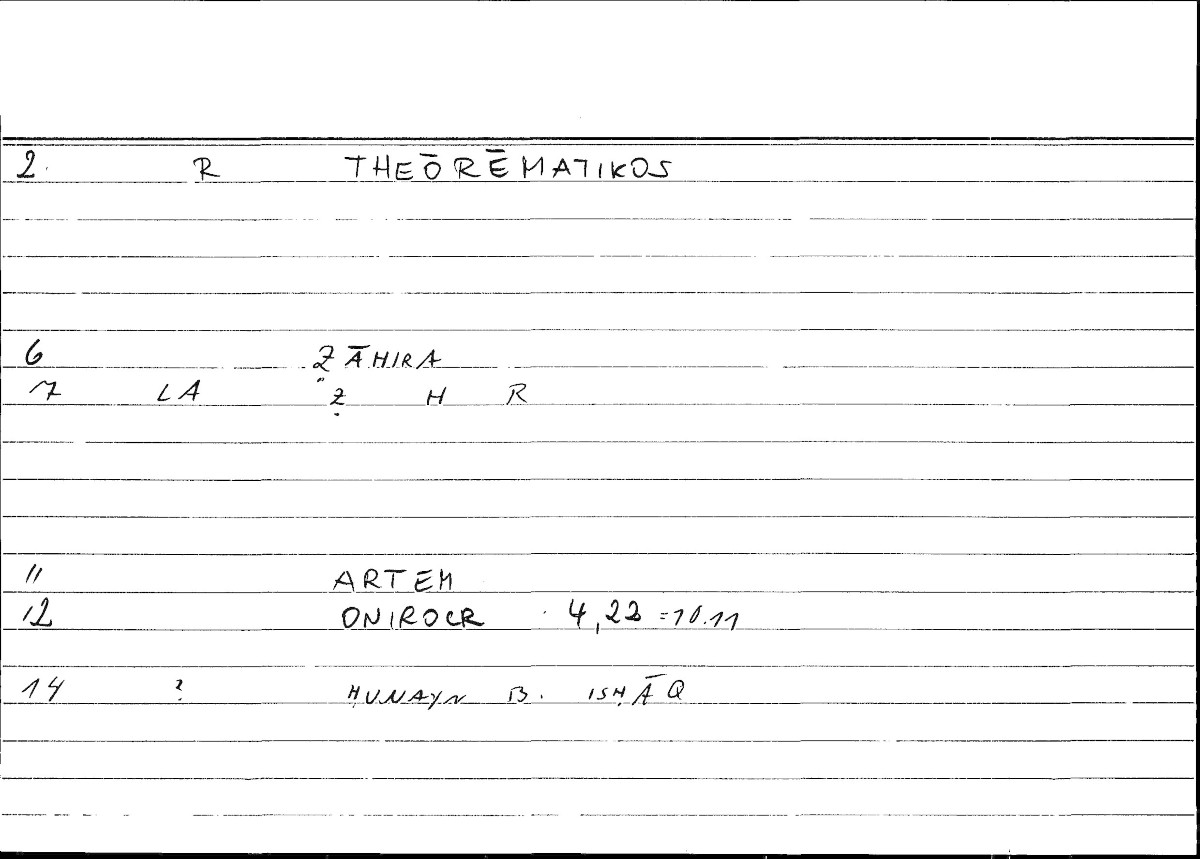 2. R THEŌRĒMATIKOS
6 ẒĀHIRA
7 LA Ẓ H R
11 ARTEM
12 ONIROCR 4,22 = 10.11
14 ? ḤUNAYN B. ISḤĀQ